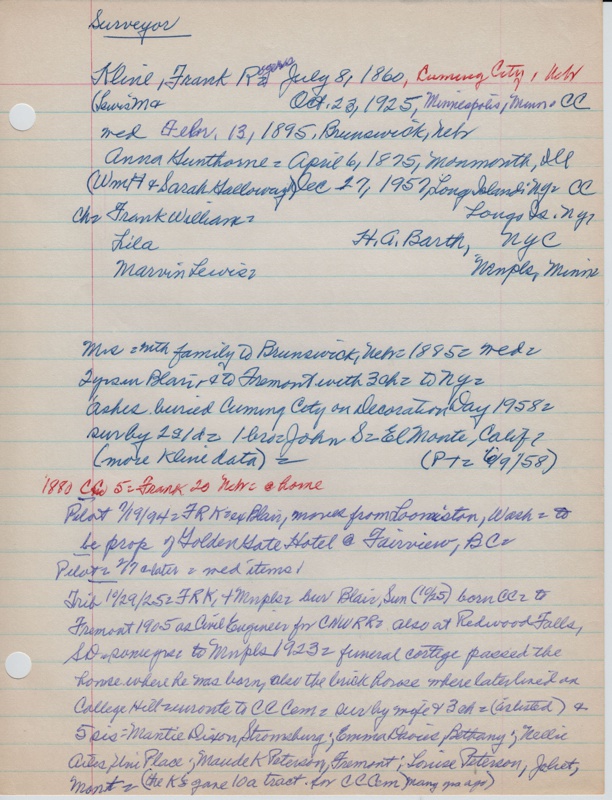 Surveyor
Kline, Frank Rogers July 8, 1860, Cuming City, Nebr
(Lewis M & Oct. 23, 1925, Minneapolis, Minn = CC
wed Febr. 13, 1895, Brunswick, Nebr
Anna Gunthorne = April 6, 1875, Monmonth, Ill
(Wm H & Sarah Galloway) Dec 27, 1957, Long Island, Ny = CC
ch = Frank William = Longs Is. Ny,
Lila H.A. Barth, NYC
Marvin Lewis = Mnpls, Minn
Mrs = with family to Brunswick, Nebr = 1885 = wed =
2 yrs in Blair, & to Fremont with 3 ch = to Ny =
ashes buried Cuming City on Decoration Day 1958 =
sur by 2s 1d = 1 bro = John S = El Monte, Calif,
(more Kline data) = (PT = 6/9/58)
1880 CC 5 = Frank 20 Nebr = @ home
Pilot 7/19/94 = FRK = ex Blair, moved from Loomiston, Wash = to
be prop of Golden Gate Hotel @ Fairview, BC =
Pilot = 2/7 & later = wed items
Trib 10/29/25 = FRK, & Mnpls = bur Blair, Sun (10/25) born CC = to
Fremont 1905 as Civil Engineer for CNWRR = also at Redwood Falls,
SD = some yrs = to Mnpls 1923 = funeral cortege passed the
house where he was born, also the brick house where later lived on
College Hill = enroute to CC Cem = sur by wife & 3 ch = (as listed) &
5 sis = Mantie Dixon, Stromsburg; Emma Bethany; Nellie
Uni Place; Maude K Peterson, Fremont; Louise Peterson, Joliet,
Mont = (the K's gave 10 a tract for CC Cem) many yrs ago)